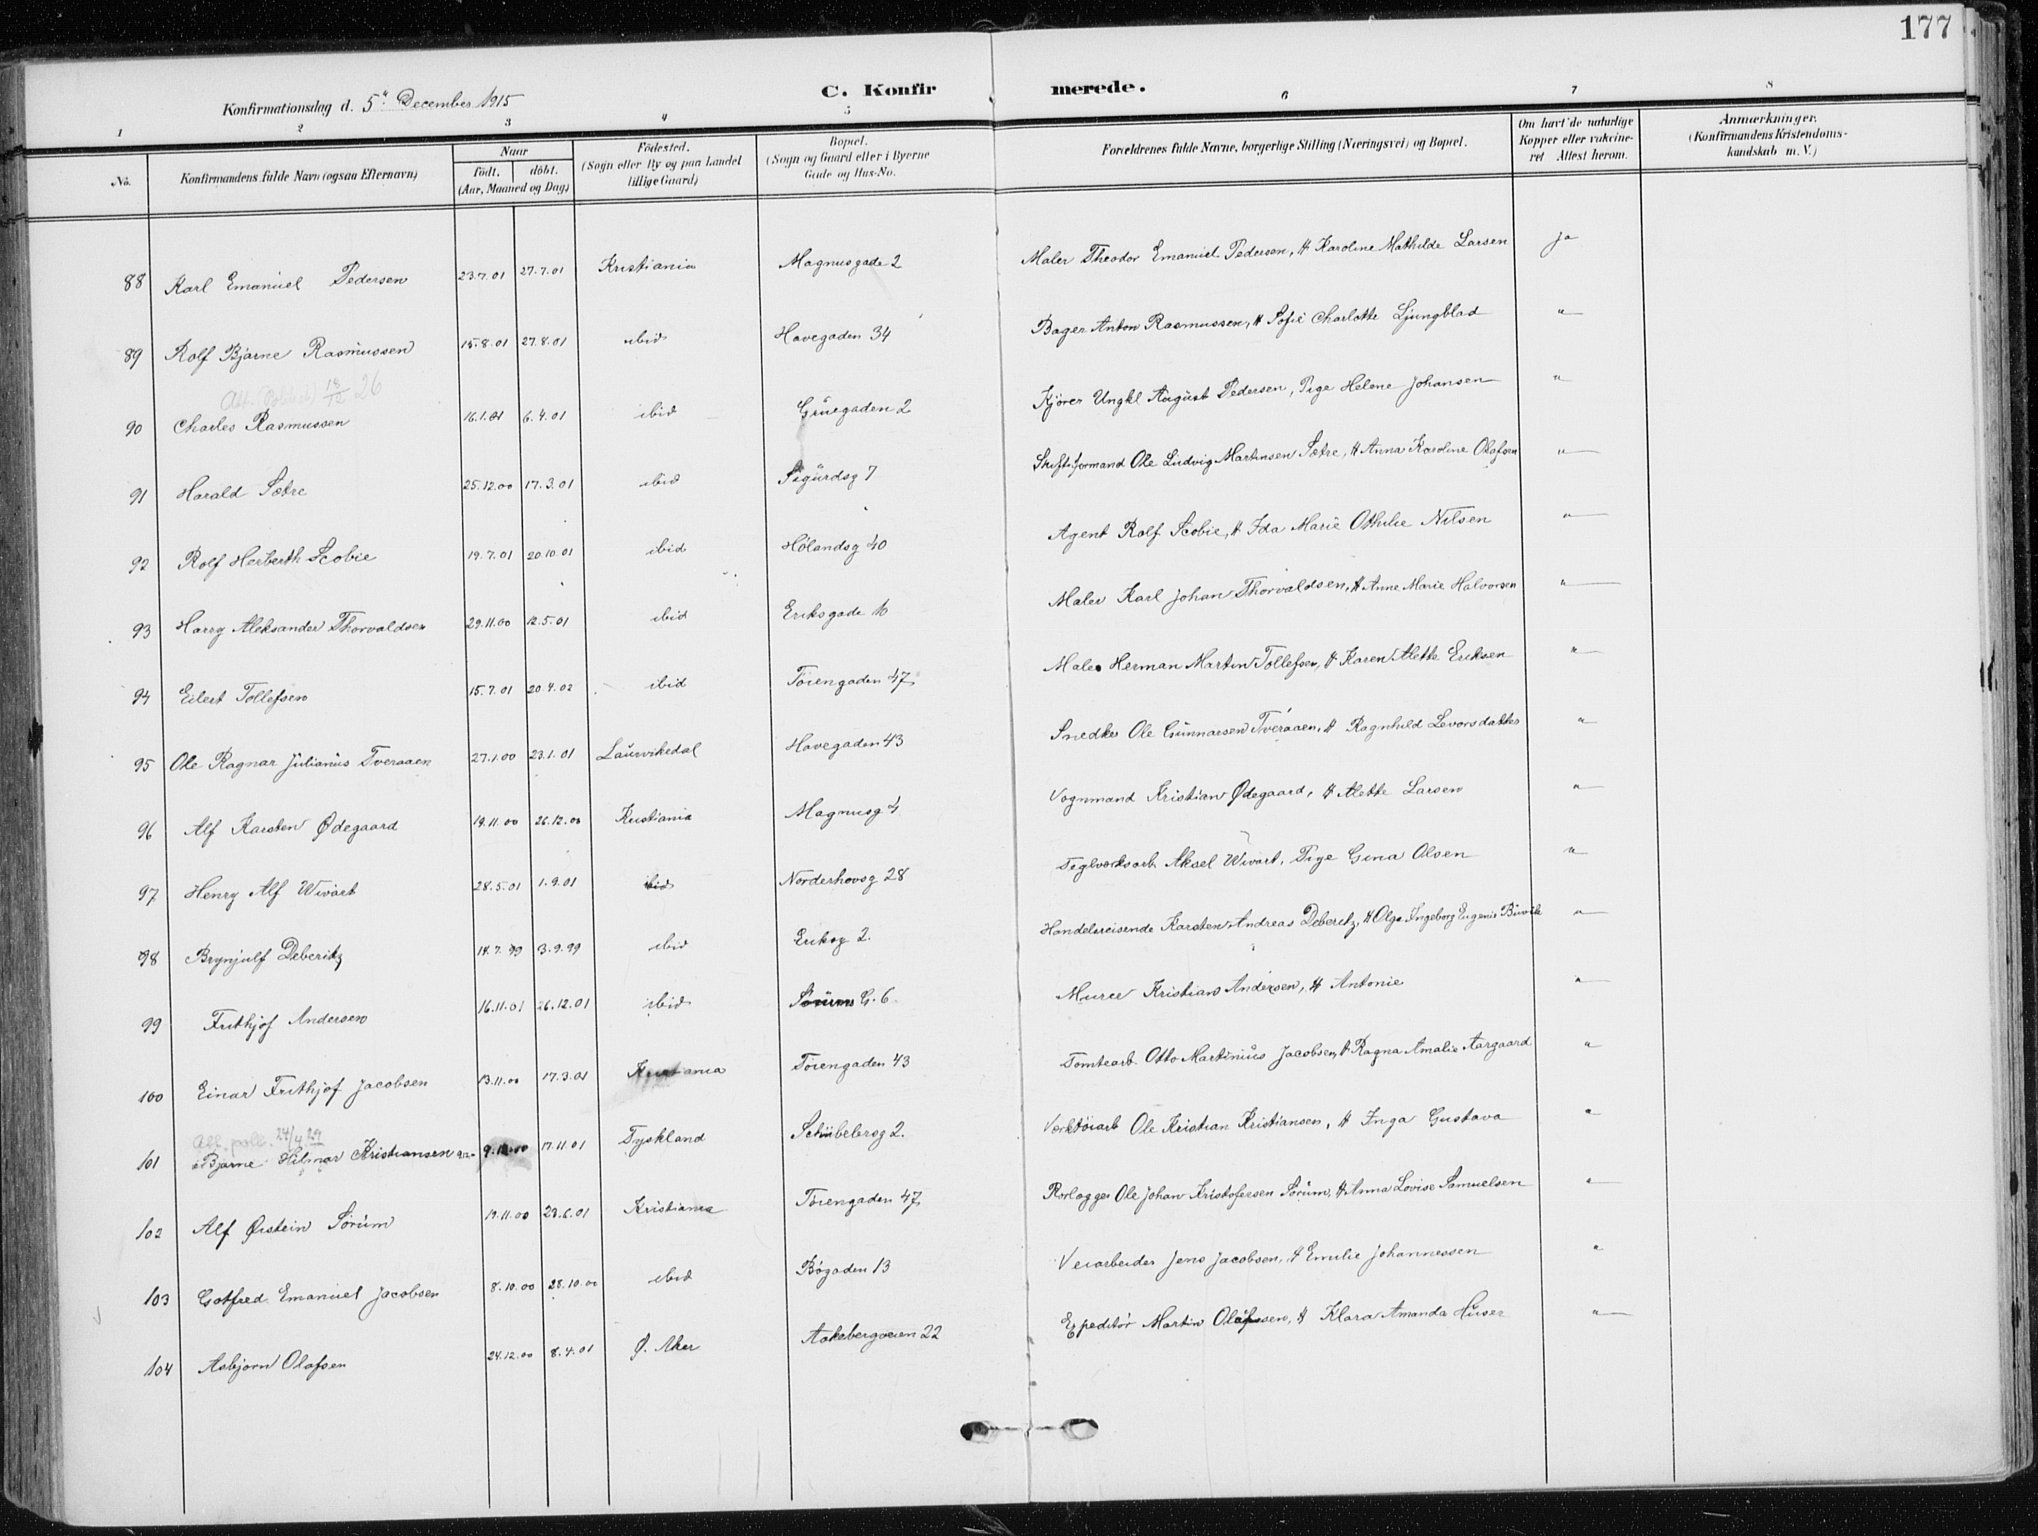 177
Konfirmationsdag d. 5" December 1915
C. Konfirmerede.
1 2 3 4 5 6 7 8
No. Konfirmandens fulde Navn (ogsaa Efternavn) Naar født. døbt. (Aar, Maaned og Dag) Fødested. (Sogn eller By og paa Landet tillige Gaard) Bopæl. (Sogn og Gaard eller i Byerne Gade og Hus-No. Forældrenes fulde Navne, borgerlige Stilling (Næringsvei) og Bopæl. Om havt de naturlige Kopper eller vakcineret Attest herom. Anmærkninger. (Konfirmandens Kristendomskundskab m. V.)
88 Karl Emanuel Pedersen 23.7.01 27.7.01 Kristiania Magnusgade 2 Maler Theodor Emanuel Pedersen, H Karoline Mathilde Larsen ja
89 Rolf Bjarne Rasmussen 15.8.01 27.8.01 ibid Havegaden 34 Bager Anton Rasmussen, H Sofie Charlotte Ljungblad "
18/12 26
90 Charles Rasmussen 16.1.01 6.4.01 ibid Grüegaden 2 Kjører Ungkl August Pedersen, Pige Helene Johansen "
91 Harald Sætre 25.12.00 17.3.01 ibid Sigurdsg 7 Skiftsformand Ole Ludvig Martinsen Sætre, H Anna Karoline Olafsen "
92 Rolf Herberth Scobie 19.7.01 20.10.01 ibid Hølandsg 40 Agent Rolf Scobie, H Ida Marie Othilie Nilsen "
93 Harry Aleksander Thorvaldsen 29.11.00 12.5.01 ibid Eriksgade 10 Maler Karl Johan Thorvaldsen, H Anne Marie Halvorsen "
94 Eilert Tollefsen 15.7.01 20.4.02 ibid Tøiengaden 47 Maler Herman Martin Tollefsen, H Karen Alette Eriksen "
95 Ole Ragnar Julianus Tveraaen 27.1.00 23.1.01 Laurvikedal Havegaden 43 Snedker Ole Gunnarsen Tveraaen, H Ragnhild Levorsdatter "
96 Alf Karsten Ødegaard 19.11.00 26.12.00 Kristiania Magnusg 4 Vognmand Kristian Ødegaard, H Alette Larsen "
97 Henry Alf Wivart 28.5.01 1.9.01 ibid Norderhovsg 28 Teglverksarb. Aksel Wivart, Pige Gina Olsen "
98 Brynjulf Deberitz 14.7.99 3.9.99 ibid Eriksg 2. Handelsreisende Karsten Andreas Deberitz, H Olga Ingeborg Eugenie Buvik "
99 Frithjof Andersen 16.11.01 26.12.01 ibid Sørum G. 6 Murer Kristian Andersen, H Antonie "
100 Einar Frithjof Jacobsen 13.11.00 17.3.01 Kristiania Tøiengaden 43 Tomtearb. Otto Martinius Jacobsen, H Ragna Amalie Aargaard "
Att. polt. 24/4 29
101 Bjarne Hilmar Kristiansen 9.12.00 17.11.01 Tyskland Schübelersg 2. Verktøiarb Ole Kristian Kristiansen, H Inga Gustava "
102 Alf Øistein Sørum 19.11.00 23.6.01 Kristiania Tøiengaden 47 Rørlægger Ole Johan Kristofersen Sørum, H Anna Lovise Samuelsen "
103 Gotfred Emanuel Jacobsen 8.10.00 28.10.00 ibid Bøgaden 13 Veiarbeider Jens Jacobsen, H Emilie Johannessen "
104 Asbjørn Olafsen 24.12.00 8.4.01 Ø. Aker Aakebergveien 22 Expeditør Martin Olafssen, H Klara Amanda Huser "